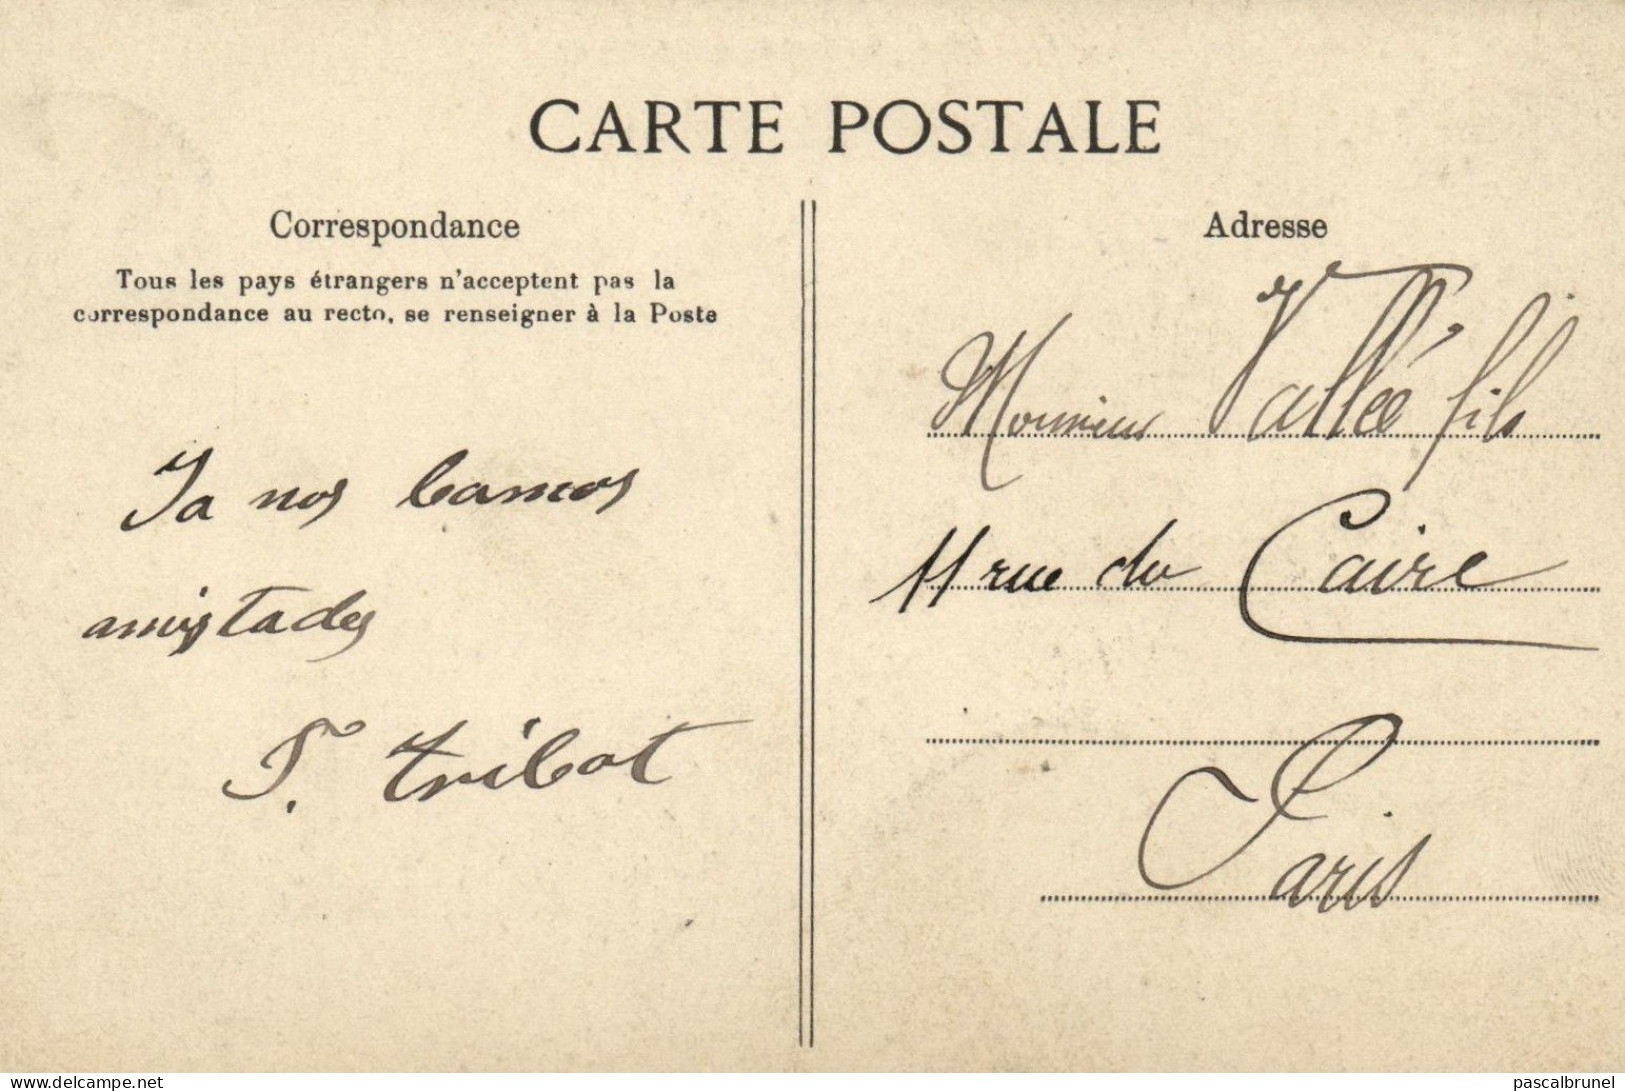 CARTE POSTALE
Correspondance
Tous les pays étrangers n'acceptent pas la
correspondance au recto, se renseigner à la Poste
Ya nos bamos
amistades
T. tribot
Adresse
Monsieur Vallée fils
11 rue du Caire
Paris
www.delcampe.net
pascalbrunel